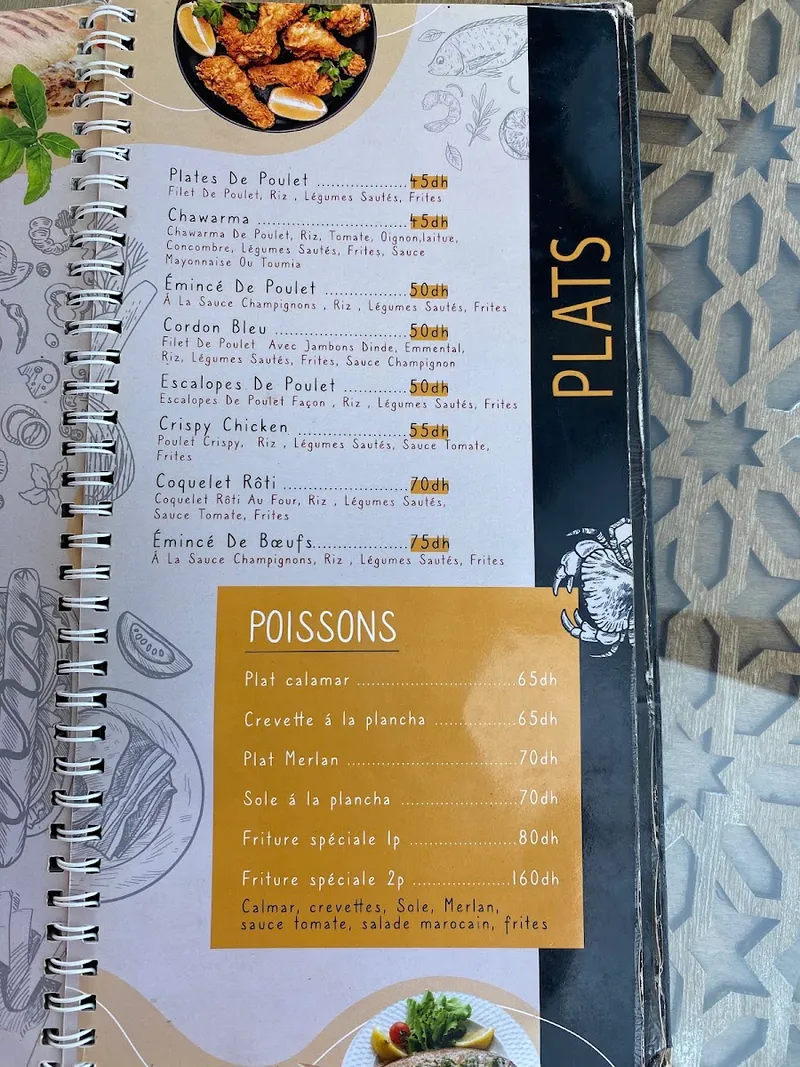 PLATS
Plates De Poulet ....................45dh
Filet De Poulet, Riz , Légumes Sautés, Frites
Chawarma .................................45dh
Chawarma De Poulet, Riz, Tomate, Oignon,laitue,
Concombre, Légumes Sautés, Frites, Sauce
Mayonnaise Ou Toumia
Émincé De Poulet ...................50dh
Á La Sauce Champignons , Riz , Légumes Sautés, Frites
Cordon Bleu .............................50dh
Filet De Poulet Avec Jambons Dinde, Emmental,
Riz, Légumes Sautés, Frites, Sauce Champignon
Escalopes De Poulet ..............50dh
Escalopes De Poulet Façon , Riz , Légumes Sautés, Frites
Crispy Chicken ........................55dh
Poulet Crispy, Riz , Légumes Sautés, Sauce Tomate,
Frites
Coquelet Rôti ............................70dh
Coquelet Rôti Au Four, Riz , Légumes Sautés,
Sauce Tomate, Frites
Émincé De Bœufs.....................75dh
Á La Sauce Champignons, Riz , Légumes Sautés, Frites
POISSONS
Plat calamar ..................................65dh
Crevette á la plancha .................65dh
Plat Merlan ....................................70dh
Sole á la plancha .........................70dh
Friture spéciale 1p ........................80dh
Friture spéciale 2p .....................160dh
Calmar, crevettes, Sole, Merlan,
sauce tomate, salade marocain, frites